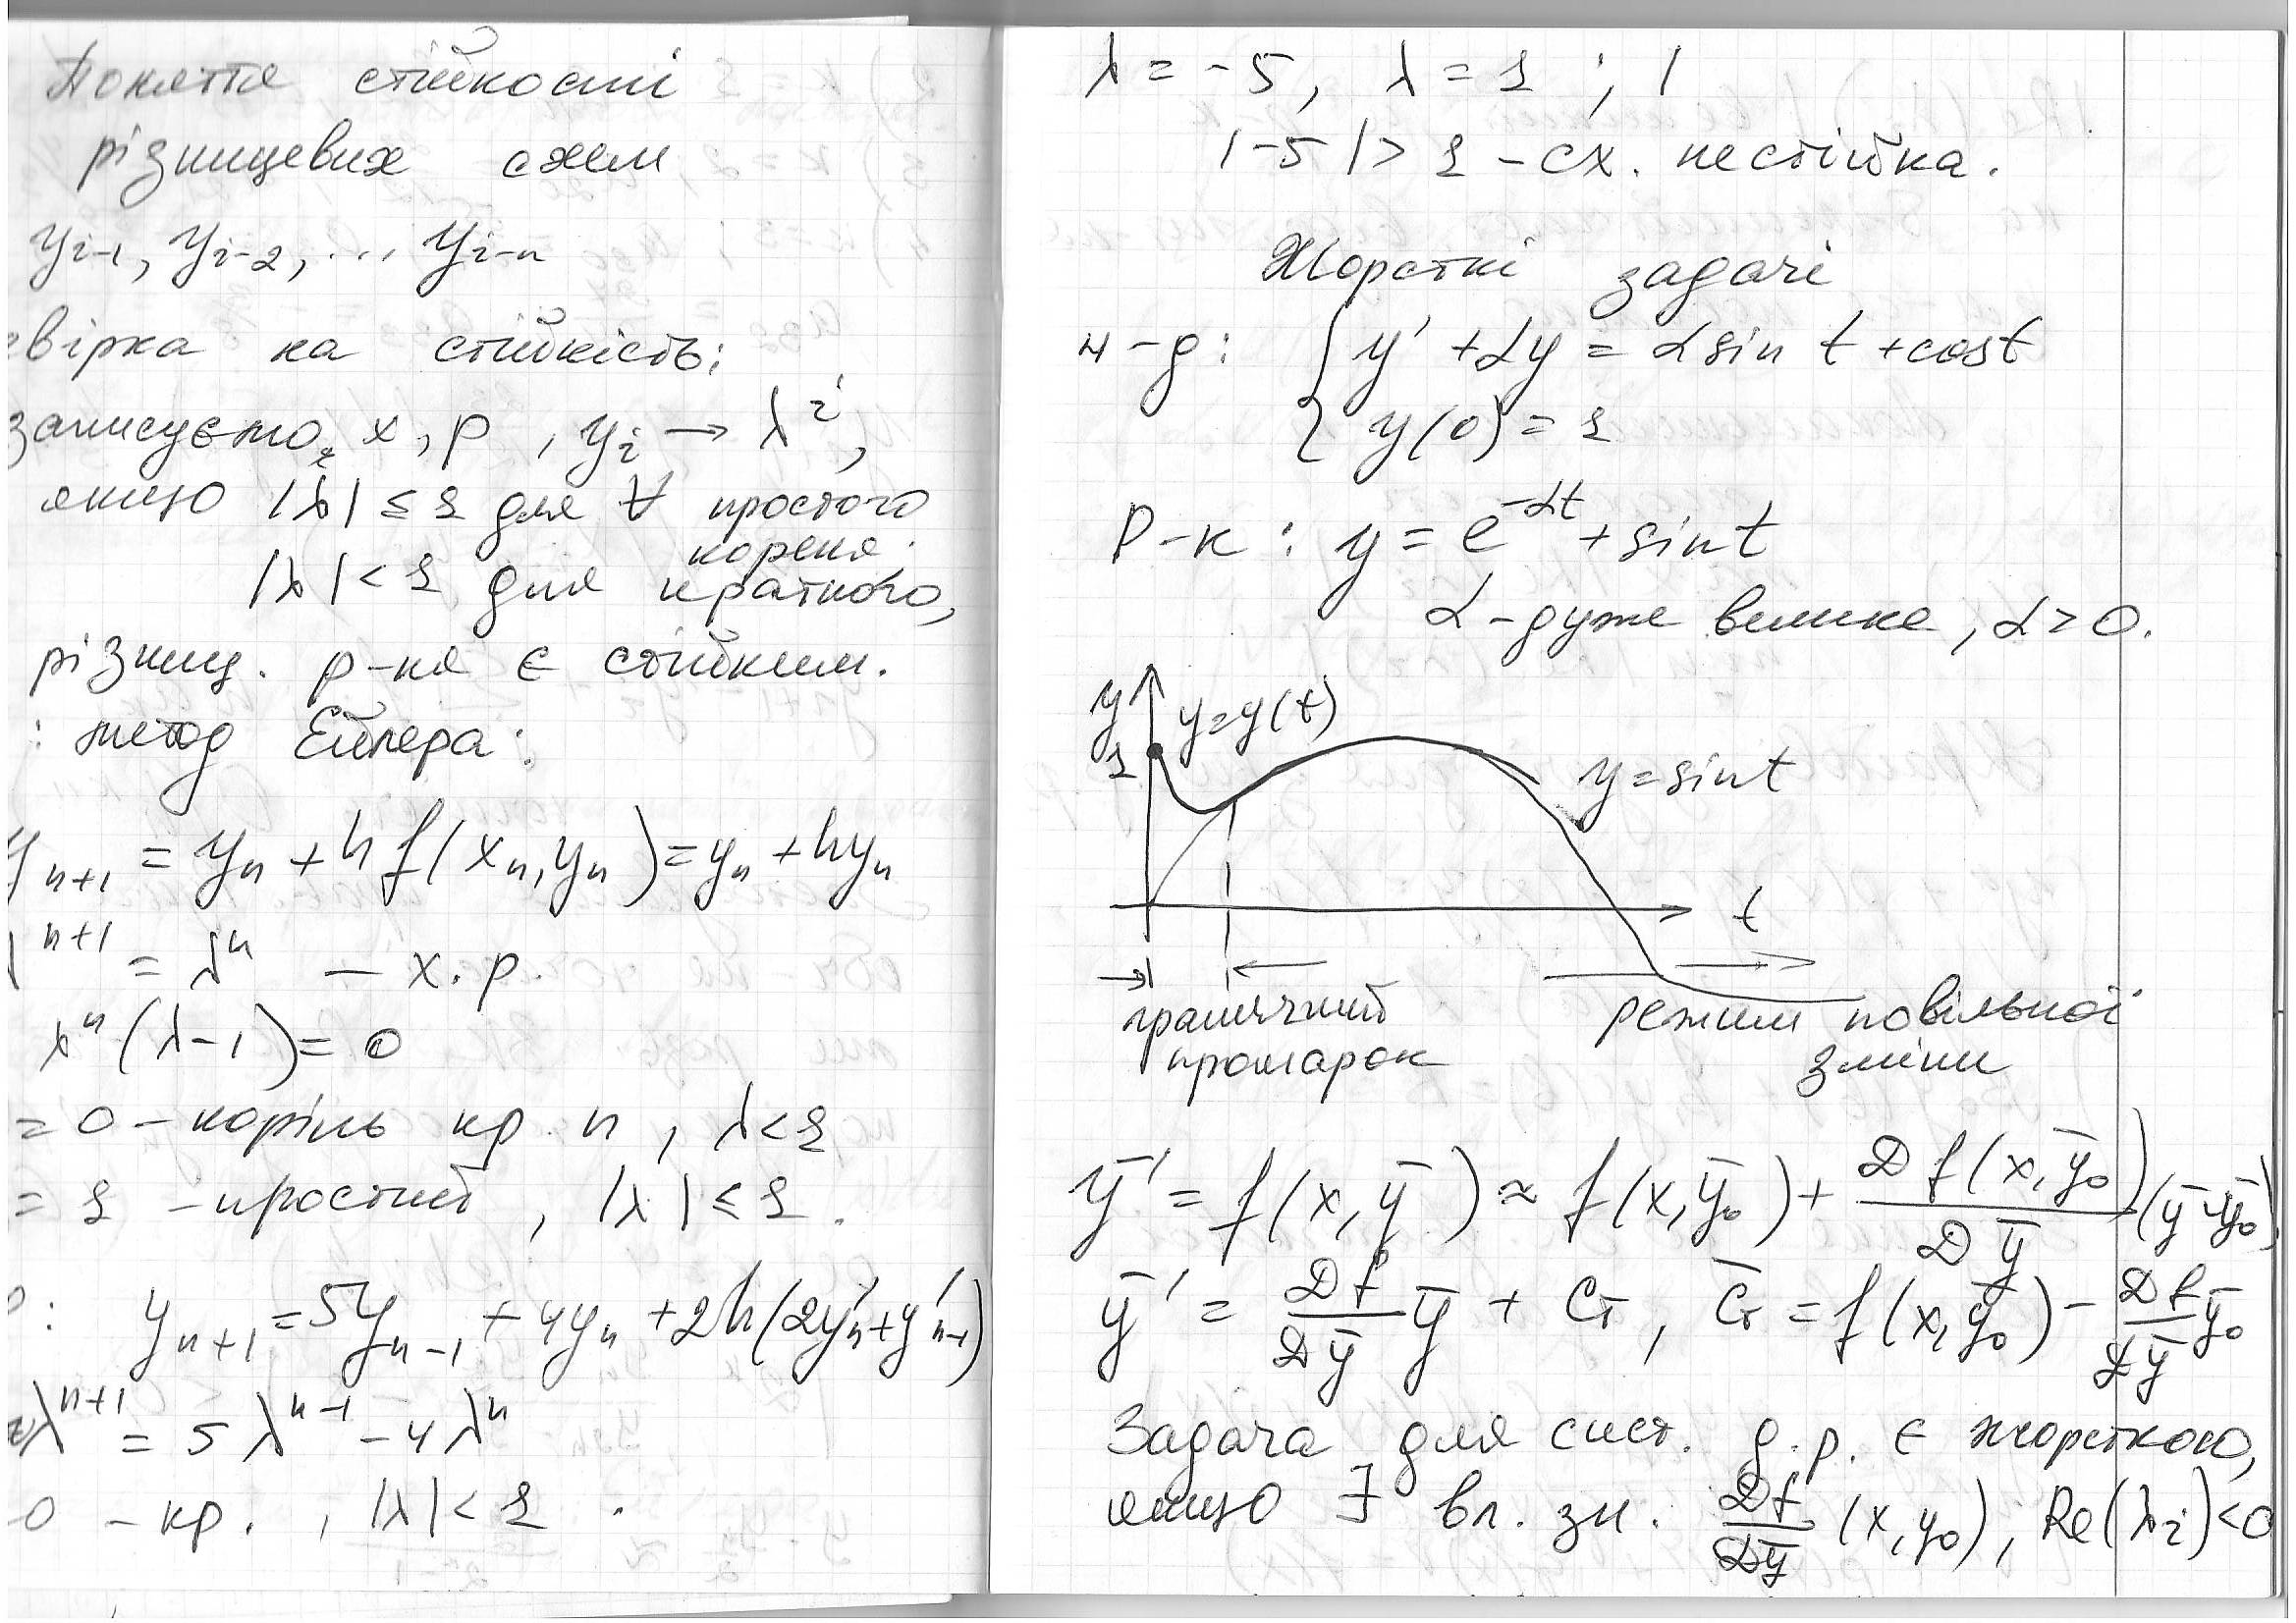 Поняття стійкості
різницевих схем
y_{i-1}, y_{i-2}, ... y_{i-n}
евірка на стійкість:
записуємо х.р, y_i → λ^i,
якщо |λ| ≤ 1 для ∀ простого
кореня.
|λ| < 1 для кратного,
різниц. р-ня є стійким.
: метод Ейлера:
y_{n+1} = y_n + h f(x_n, y_n) = y_n + h y_n
λ^{n+1} = λ^n – х.р.
λ^n (λ-1) = 0
= 0 – корінь кр. n, λ < 1
= 1 – простий, |λ| ≤ 1.
: y_{n+1} = 5y_{n-1} + 4y_n + 2h(2y'_n + y'_{n-1})
λ^{n+1} = 5λ^{n-1} - 4λ^n
0 – кр., |λ| < 1.
λ = -5, λ = 1 ; |
|-5| > 1 – сх. нестійка.
Жорсткі задачі
н-д: { y' + αy = α sin t + cos t
{ y(0) = 1
Р-к: y = e^{-αt} + sin t
α – дуже велике, α > 0.
y y = y(t)
1
y = sin t
t
граничний режим повільної
прошарок зміни
ȳ' = f(x, ȳ) ≈ f(x, ȳ_0) + \frac{D f(x, ȳ_0)}{D ȳ} (ȳ - ȳ_0),
ȳ' = \frac{Df}{Dȳ} ȳ + C̄_т, C̄_т = f(x, ȳ_0) - \frac{Df}{Dȳ} ȳ_0
Задача для сист. д.р. є жорсткою,
якщо ∃ вл. зн. \frac{Df}{Dȳ} (x, y_0), Re(λ_i) < 0